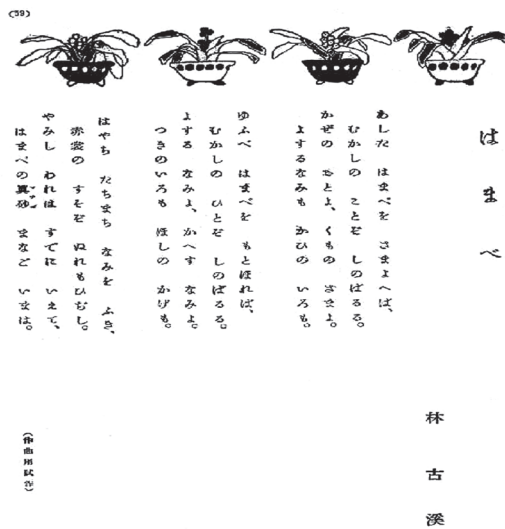 (59)
はまべ
林古溪
あした はまべを さまよへば、
むかしの ことぞ しのばるる。
かぜの おとよ、くもの さまよ。
よするなみも かひの いろも。
ゆふべ はまべを もとほれば、
むかしの ひとぞ しのばるる。
よする なみよ、かへす なみよ。
つきのいろも ほしの かげも。
はやち たちまち なみを ふき、
赤裳の すそぞ ぬれもひぢし。
やみし われは すでに いえて、
はまべの眞砂 まなご いまは。
(作曲用試作)